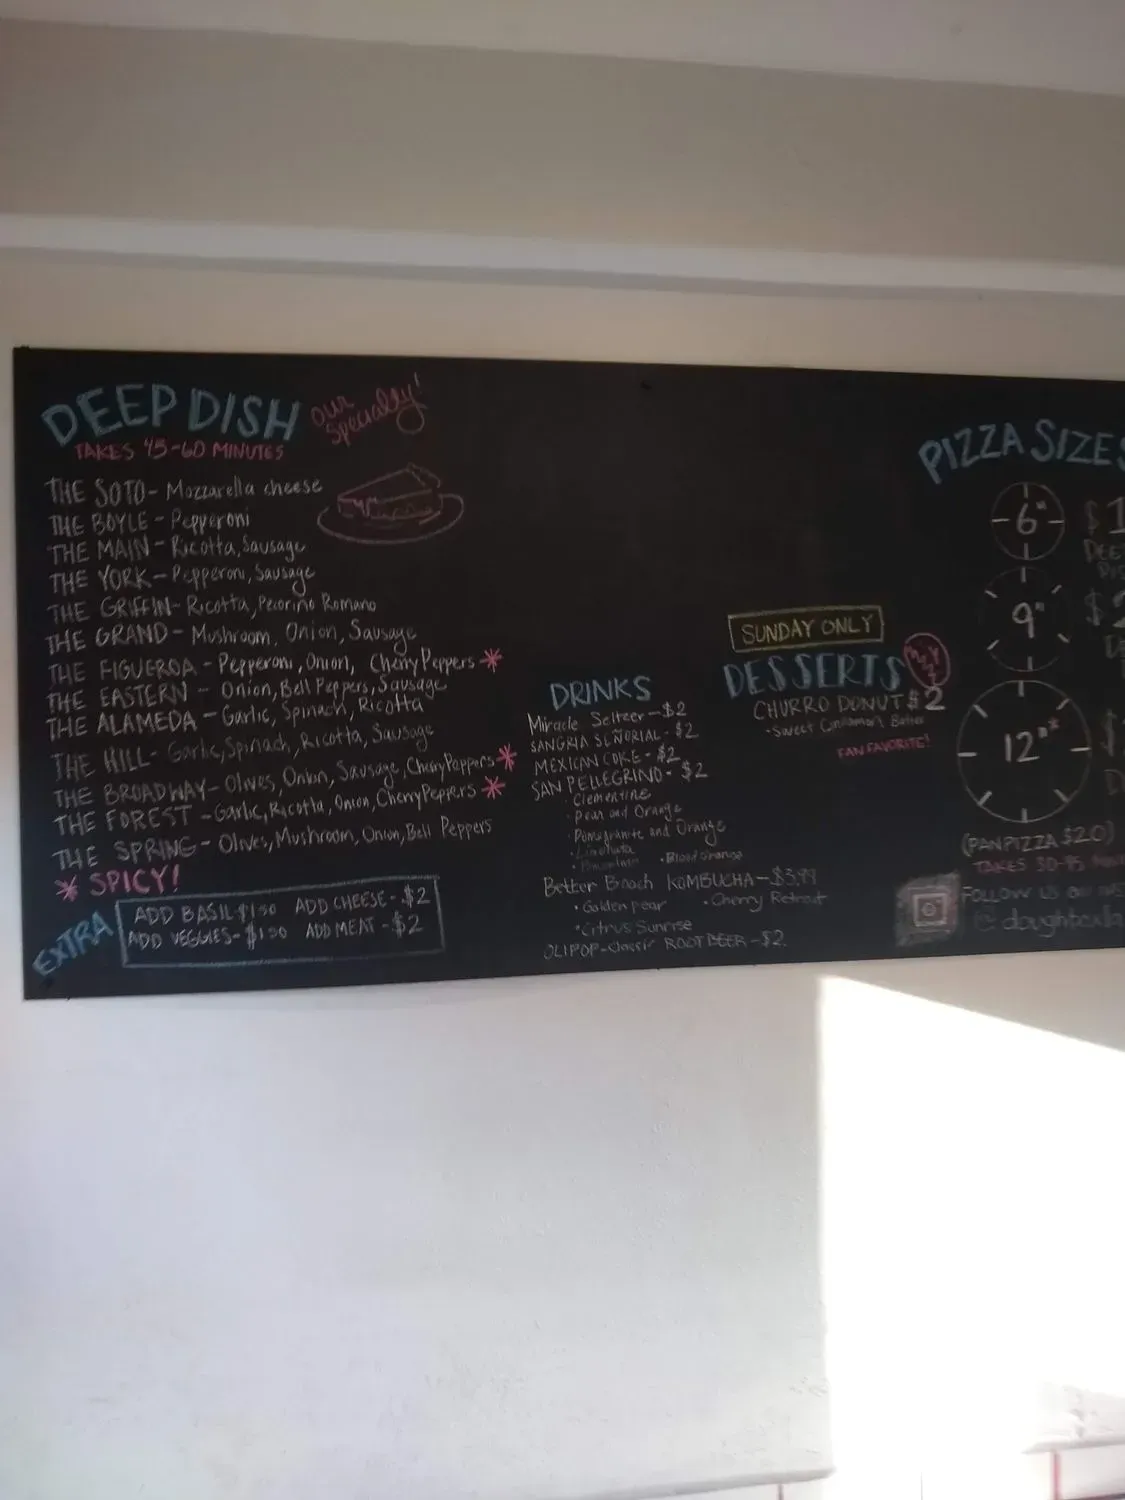 DEEP DISH
our specialty!
TAKES 45-60 MINUTES
THE SOTO - Mozzarella cheese
THE BOYLE - Pepperoni
THE MAIN - Ricotta, Sausage
THE YORK - Pepperoni, Sausage
THE GRIFFIN - Ricotta, Pecorino Romano
THE GRAND - Mushroom, Onion, Sausage
THE FIGUEROA - Pepperoni, Onion, Cherry Peppers *
THE EASTERN - Onion, Bell Peppers, Sausage
THE ALAMEDA - Garlic, Spinach, Ricotta
THE HILL - Garlic, Spinach, Ricotta, Sausage
THE BROADWAY - Olives, Onion, Sausage, Cherry Peppers *
THE FOREST - Garlic, Ricotta, Onion, Cherry Peppers *
THE SPRING - Olives, Mushroom, Onion, Bell Peppers
* SPICY!
EXTRA
ADD BASIL-$1.50 ADD CHEESE-$2
ADD VEGGIES-$1.50 ADD MEAT-$2
DRINKS
Miracle Seltzer-$2
SANGRIA SEÑORIAL-$2
MEXICAN COKE-$2
SAN PELLEGRINO-$2
• Clementine
• Pear and Orange
• Pomegranite and Orange
• Limonata
• Blood Orange
Better Booch KOMBUCHA-$3.99
• Golden pear • Cherry Retreat
• Citrus Sunrise
OLIPOP-Classic ROOT BEER-$2
SUNDAY ONLY
DESSERTS
CHURRO DONUT $2
• Sweet Cinnamon Butter
FAN FAVORITE!
PIZZA SIZES
6"
9"
12"*
(PAN PIZZA $20)
TAKES 30-45
FOLLOW US ON